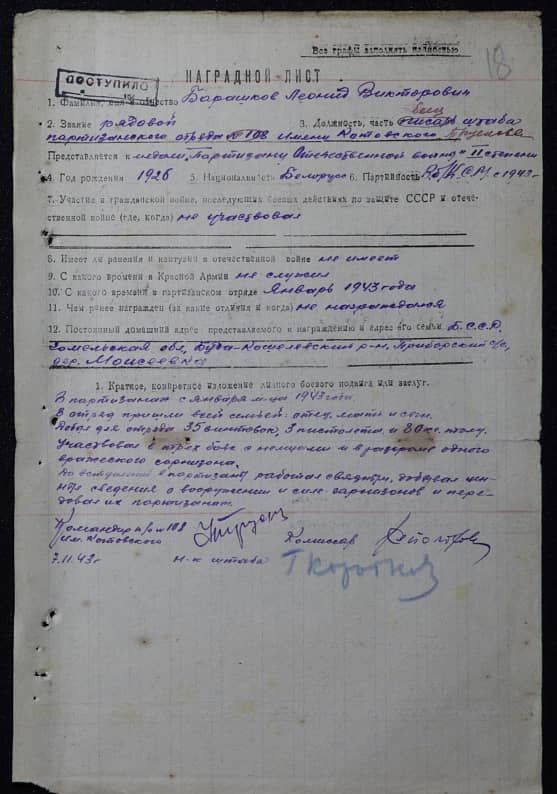 Все графы заполнять полностью
18
НАГРАДНОЙ ЛИСТ
ПОСТУПИЛО
1. Фамилия, имя и отчество Барашков Леонид Викторович
2. Звание рядовой 3. Должность, часть писарь штаба
боец
партизанского отряда № 108 имени Котовского
Представляется к медали „Партизану Отечественной войны" II степени
4. Год рождения 1926 5. Национальность Белорус 6. Партийность с 1943 г
7. Участие в гражданской войне, последующих боевых действиях по защите СССР и отече-
ственной войне (где, когда) не участвовал
8. Имеет ли ранения и контузии в отечественной войне не имеет
9. С какого времени в Красной Армии не служил
10. С какого времени в партизанском отряде Январь 1943 года
11. Чем ранее награжден (за какие отличия и когда) не награждался
12. Постоянный домашний адрес представляемого к награждению и адрес его семьи Б.С.С.Р.
Гомельская обл, Буда-Кошелевский р-н, Приборский с/с,
дер. Моисеевка
1. Краткое, конкретное изложение личного боевого подвига или заслуг.
В партизанах с января м-ца 1943 года.
В отряд пришли всей семьей: отец, мать и сын.
для отряда 35 винтовок, 3 пистолета и 80 кг. толу.
Участвовал в трех боях с немцами и в разгроме одного
вражеского гарнизона.
До вступления в партизаны работал связным, добывал цен-
ные сведения о вооружении и силе гарнизонов и пере-
давал их партизанам.
Командир п/о № 108
им. Котовского
Комиссар
7.11.43 г
н-к штаба